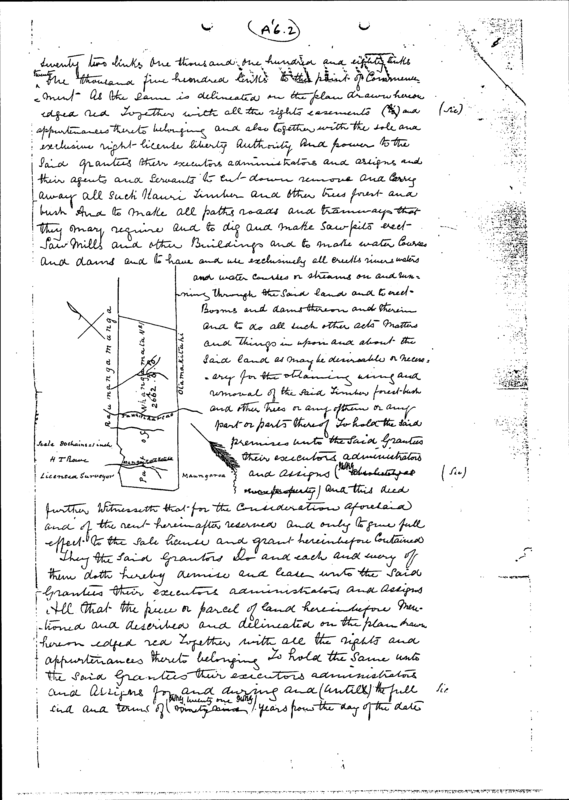 (A'6.2)
twenty two links One thousand one hundred and eighty links
One thousand five hundred links to the point of Commence
-ment As the same is delineated on the plan drawn hereon
edged red Together with all the rights easements and (Sic)
appurtenances thereto belonging and also together with the sole and
exclusive right license liberty Authority And power to the
Said Grantees their executors administrators and assigns and
their agents and Servants to Cut down remove and Carry
away all Such Kauri Timber and Other trees forest and
bush And to make all paths roads and tramways that
they may require and to dig and make Sawpits erect
Saw Mills and other Buildings and to make water Courses
And dams and to have and use exclusively all creeks rivers waters
and water courses or streams on and run-
-ning through the Said land and to erect
Booms and dams thereon and therein
and to do all such other acts Matters
and things in upon and about the
Said land as may be desireable or neces-
-ary for the obtaining using and
removal of the Said Timber forest bush
and other trees or any of them or any
part or parts thereof To hold the Said
premises unto the Said Grantees
their executors administrators
and Assigns (Sic)
And this deed
Raumangamanga
Pa of Whangamata No
Otamakitahi
Scale 20 chains = 1 inch
H T Rowe
Licensed Surveyor
Maungaroa
further Witnesseth that for the Consideration aforesaid
and of the rent hereinafter reserved and only to give full
effect to the Sale license and grant hereinbefore Contained
They the Said Grantors Do and each and every of
them doth hereby demise and lease unto the Said
Grantees their executors administrators And Assigns
All that the piece or parcel of land hereinbefore Men-
-tioned and described and delineated on the plan drawn
hereon edged red Together with all the rights and
appurtenances thereto belonging To hold the Same unto
the Said Grantees their executors administrators
and Assigns for and during and (until) the full Sic
end and term of years from the day of the date